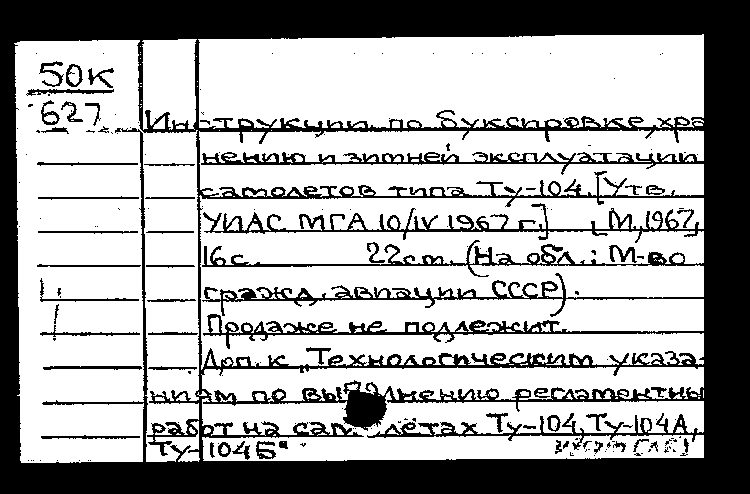 50К
627
Инструкции по буксировке, хра
нению и зимней эксплуатации
самолетов типа Ту-104. [Утв.
УИАС МГА 10/IV 1967 г.] [М, 1967,
16 с. 22 см. (На обл.: М-во
гражд. авиации СССР).
Продаже не подлежит.
Доп. к „Технологическим указа-
ниям по выполнению регламентны
работ на самолётах Ту-104, Ту-104А,
Ту-104Б"